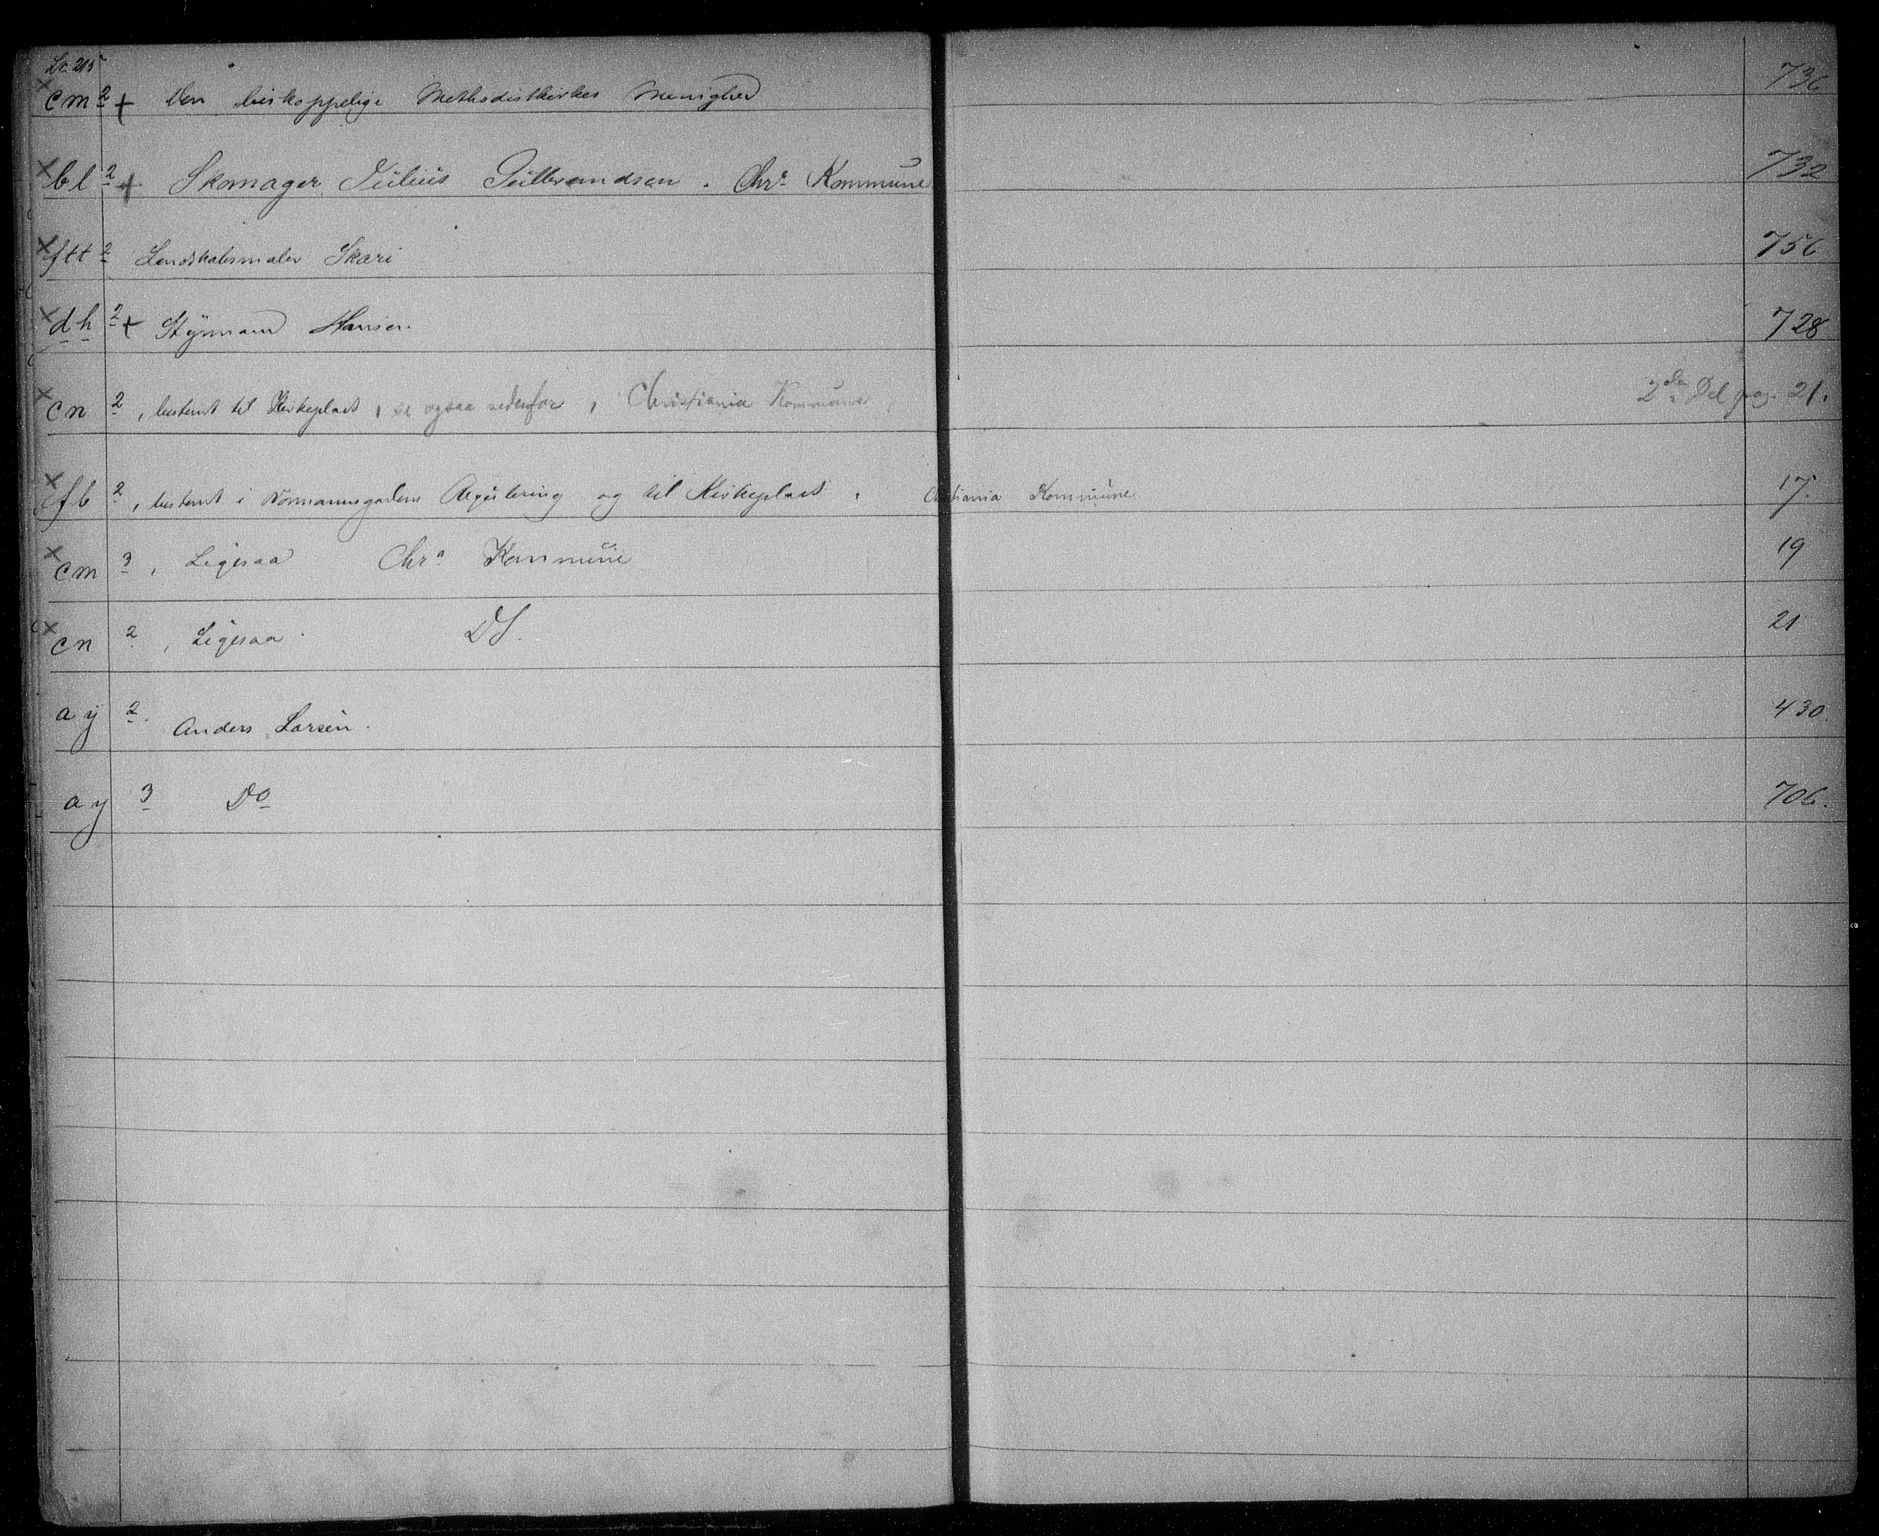 Lt. 215
× cm 2 + Den biskoppelige Methodistkirkes Menighed 736
× bl 2 + Skomager Julius Gulbrandsen. Chra Kommune 732
× ftt 2 Landskabsmaler Skari 756
× dh 2 + Styrmand Hansen 728
× cn 2, bestemt til Kirkeplads, se ogsaa nedenfor, Christiania Kommune, 2den Del pag. 21.
× fb 2, bestemt i Normannsgadens Regulering og til Kirkeplads, Christiania Kommune 17.
× cm 3, Ligesaa Chra Kommune 19
× cn 2, Ligesaa. DS. 21
ay 2. Anders Larsen. 430.
ay 3 Do 706.